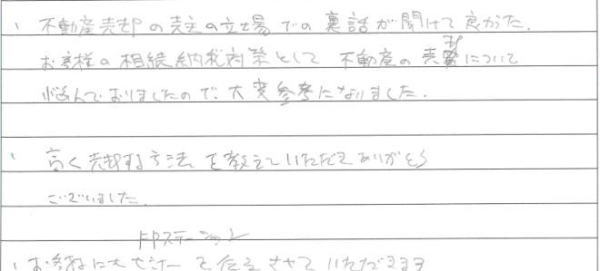 、不動産売却の売主の立場での裏話が聞けて良かった。
お客様の相続納税対策として不動産の売却について
悩んでおりましたので、大変参考になりました。
、高く売却する方法を教えていただきありがとう
ございました。
FPステーション
、お客様に セミナーを伝えさせていただきます